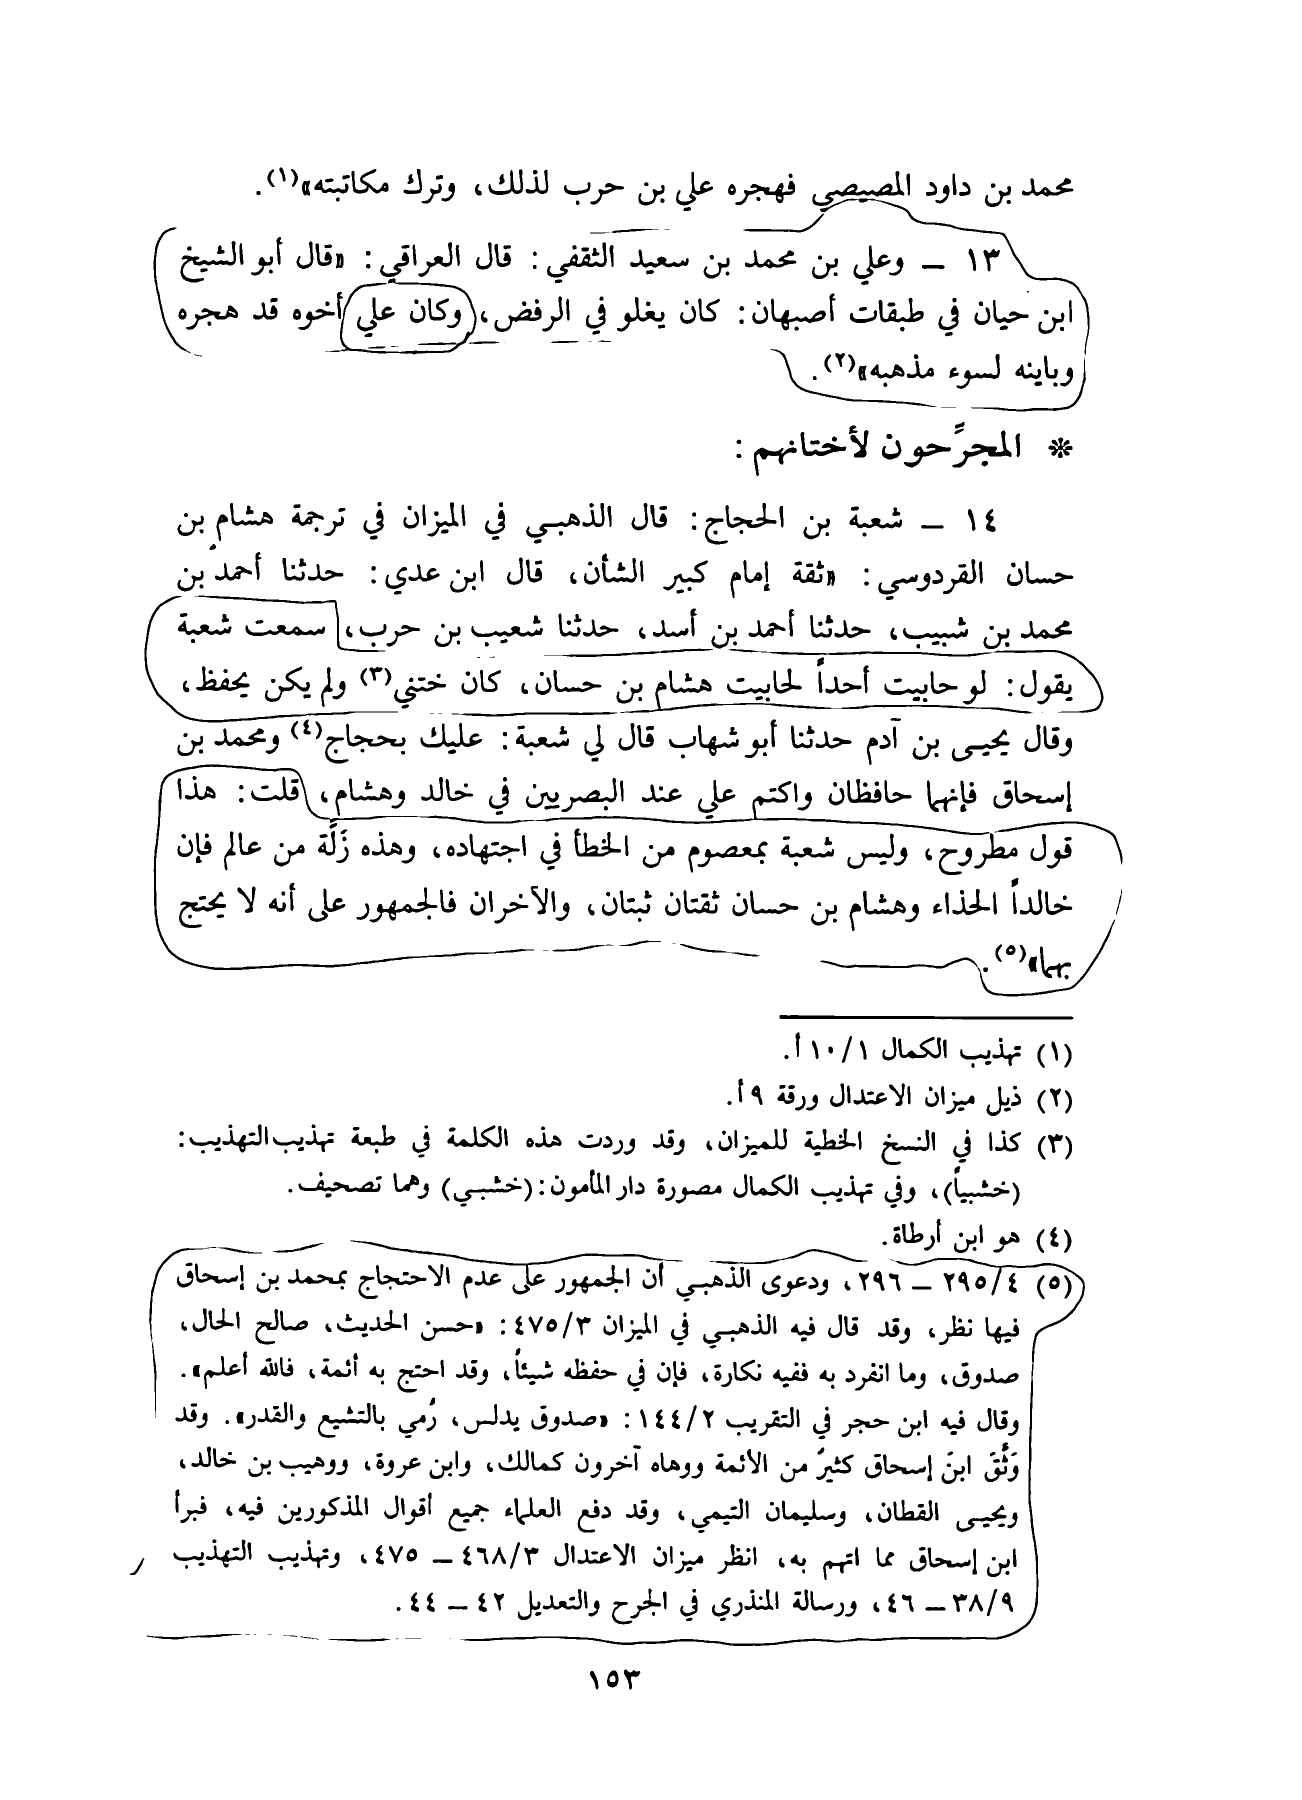 محمد بن داود المصيصي فهجره علي بن حرب لذلك، وترك مكاتبته»(١).
١٣ ــ وعلي بن محمد بن سعيد الثقفي: قال العراقي: «قال أبو الشيخ
ابن حيان في طبقات أصبهان: كان يغلو في الرفض، وكان علي أخوه قد هجره
وباينه لسوء مذهبه»(٢).
* المجرِّحون لأختانهم:
١٤ ــ شعبة بن الحجاج: قال الذهبي في الميزان في ترجمة هشام بن
حسان القردوسي: «ثقة إمام كبير الشأن، قال ابن عدي: حدثنا أحمد بن
محمد بن شبيب، حدثنا أحمد بن أسد، حدثنا شعيب بن حرب، سمعت شعبة
يقول: لو حابيت أحداً لحابيت هشام بن حسان، كان ختني(٣) ولم يكن يحفظ،
وقال يحيى بن آدم حدثنا أبو شهاب قال لي شعبة: عليك بحجاج(٤) ومحمد بن
إسحاق فإنهما حافظان واكتم علي عند البصريين في خالد وهشام، قلت: هذا
قول مطروح، وليس شعبة بمعصوم من الخطأ في اجتهاده، وهذه زَلَّة من عالم فإن
خالداً الحذاء وهشام بن حسان ثقتان ثبتان، والآخران فالجمهور على أنه لا يحتج
بهما»(٥).
(١) تهذيب الكمال ١٠/١أ.
(٢) ذيل ميزان الاعتدال ورقة ٩أ.
(٣) كذا في النسخ الخطية للميزان، وقد وردت هذه الكلمة في طبعة تهذيب التهذيب:
(خشبياً)، وفي تهذيب الكمال مصورة دار المأمون: (خشبي) وهما تصحيف.
(٤) هو ابن أرطاة.
(٥) ٢٩٥/٤ ــ ٢٩٦، ودعوى الذهبي أن الجمهور على عدم الاحتجاج بمحمد بن إسحاق
فيها نظر، وقد قال فيه الذهبي في الميزان ٤٧٥/٣: «حسن الحديث، صالح الحال،
صدوق، وما انفرد به ففيه نكارة، فإن في حفظه شيئاً، وقد احتج به أئمة، فالله أعلم».
وقال فيه ابن حجر في التقريب ١٤٤/٢: «صدوق يدلس، رُمي بالتشيع والقدر». وقد
وَثَّقَ ابنَ إسحاق كثيرٌ من الأئمة ووهاه آخرون كمالك، وابن عروة، ووهيب بن خالد،
ويحيى القطان، وسليمان التيمي، وقد دفع العلماء جميع أقوال المذكورين فيه، فبرأ
ابن إسحاق مما اتهم به، انظر ميزان الاعتدال ٤٦٨/٣ ــ ٤٧٥، وتهذيب التهذيب
٣٨/٩ ــ ٤٦، ورسالة المنذري في الجرح والتعديل ٤٢ ــ ٤٤.
١٥٣